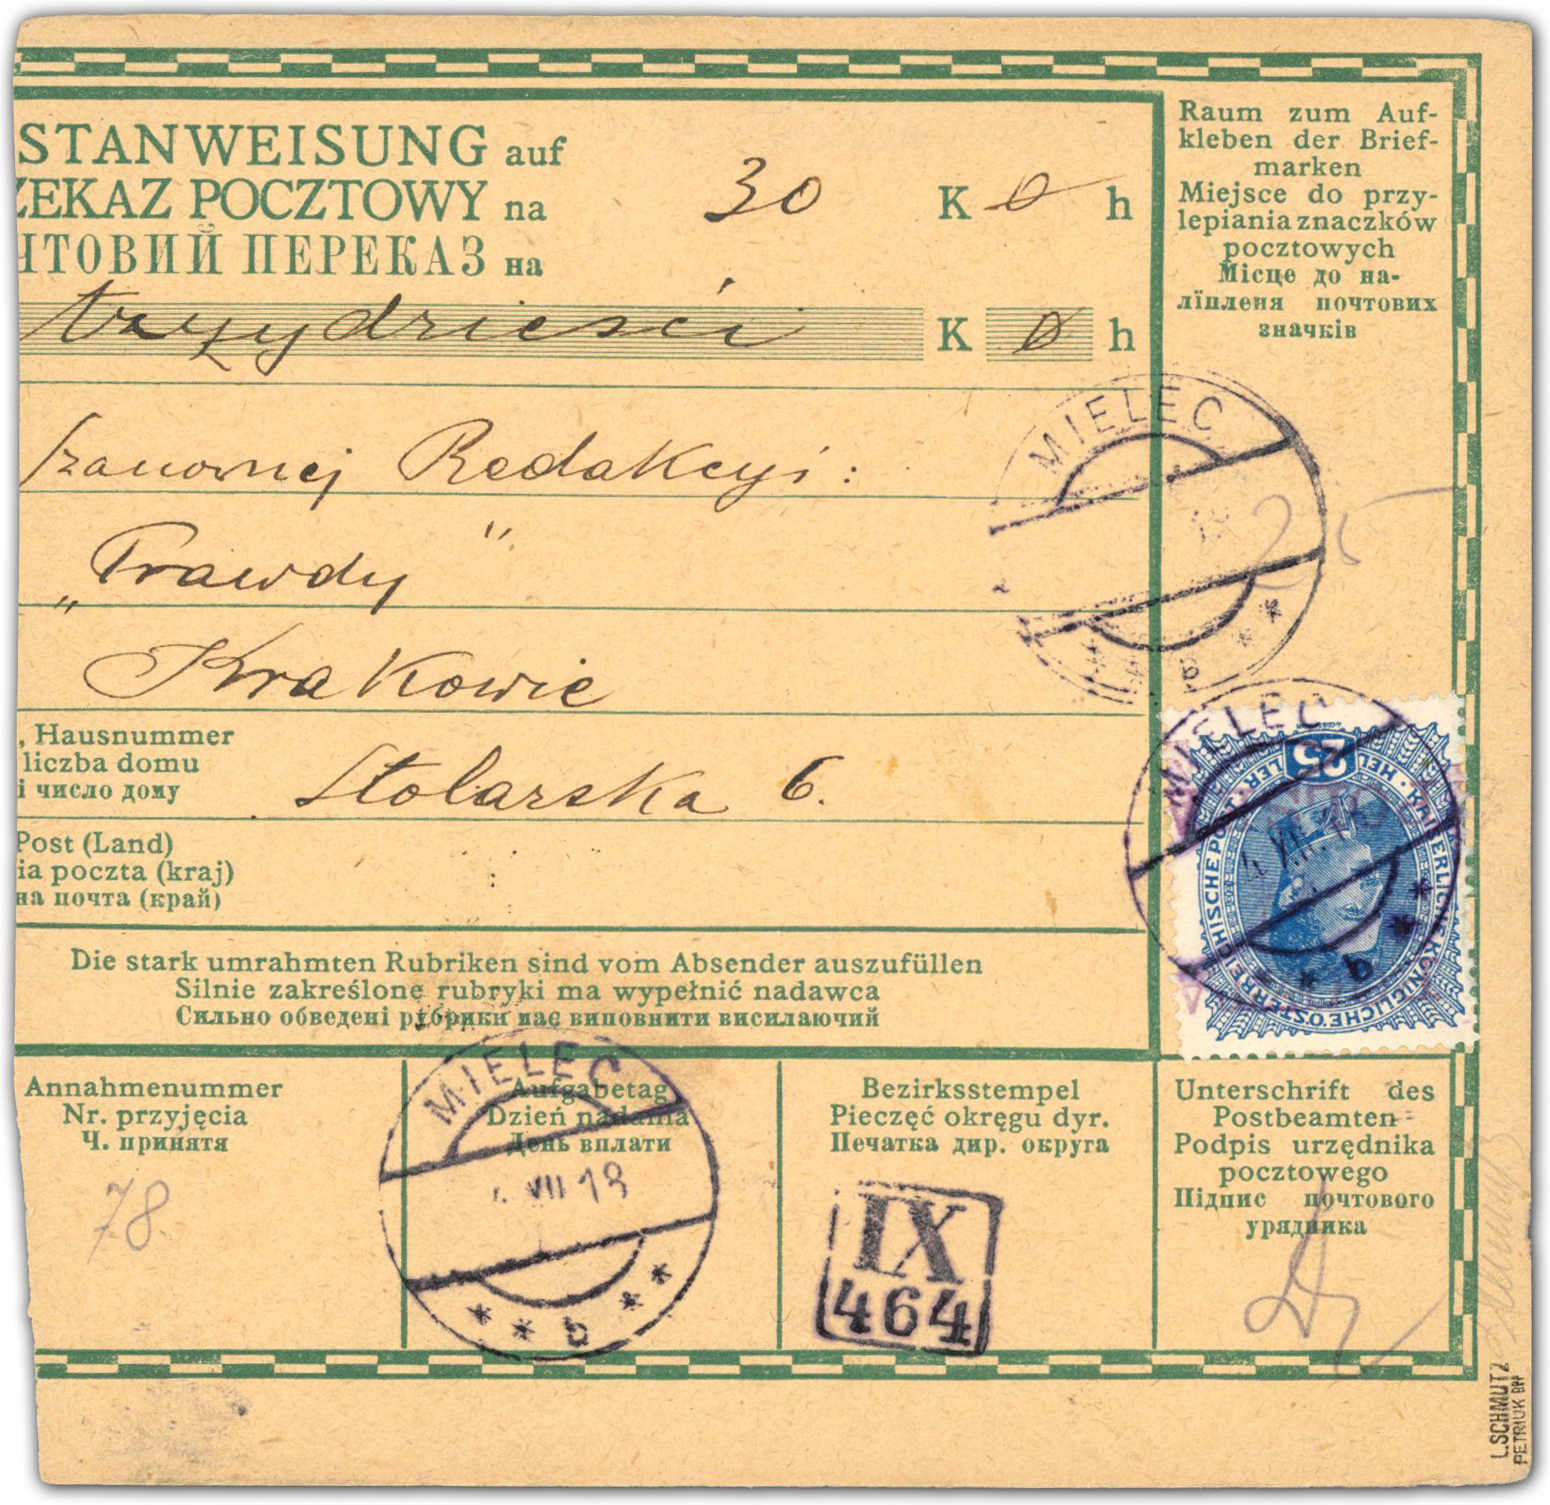 STANWEISUNG auf
ZEKAZ POCZTOWY na
ЧТОВИЙ ПЕРЕКАЗ на
30 K 0 h
trzydzieści K 0 h
Szanownej Redakcyi:
„Prawdy"
Krakowie
, Hausnummer
liczba domu
і число дому
Stolarska 6.
Post (Land)
ia poczta (kraj)
на почта (край)
Die stark umrahmten Rubriken sind vom Absender auszufüllen
Silnie zakreślone rubryki ma wypełnić nadawca
Сильно обведені рубрики має виповнити висилаючий
Raum zum Auf-
kleben der Brief-
marken
Miejsce do przy-
lepiania znaczków
pocztowych
Місце до на-
ліпленя почтових
значків
MIELEC
25
MIELEC
XII
b
25
HELLER
KAISERLICHE KÖNIGLICHE ÖSTERREICHISCHE POST
Annahmenummer
Nr. przyjęcia
Ч. принятя
78
Aufgabetag
Dzień nadania
День вплати
MIELEC
VII 18
b
Bezirksstempel
Pieczęć okręgu dyr.
Печатка дир. округа
IX
464
Unterschrift des
Postbeamten
Podpis urzędnika
pocztowego
Підпис почтового
урядника
L.SCHMUTZ
PETRIUK BPP